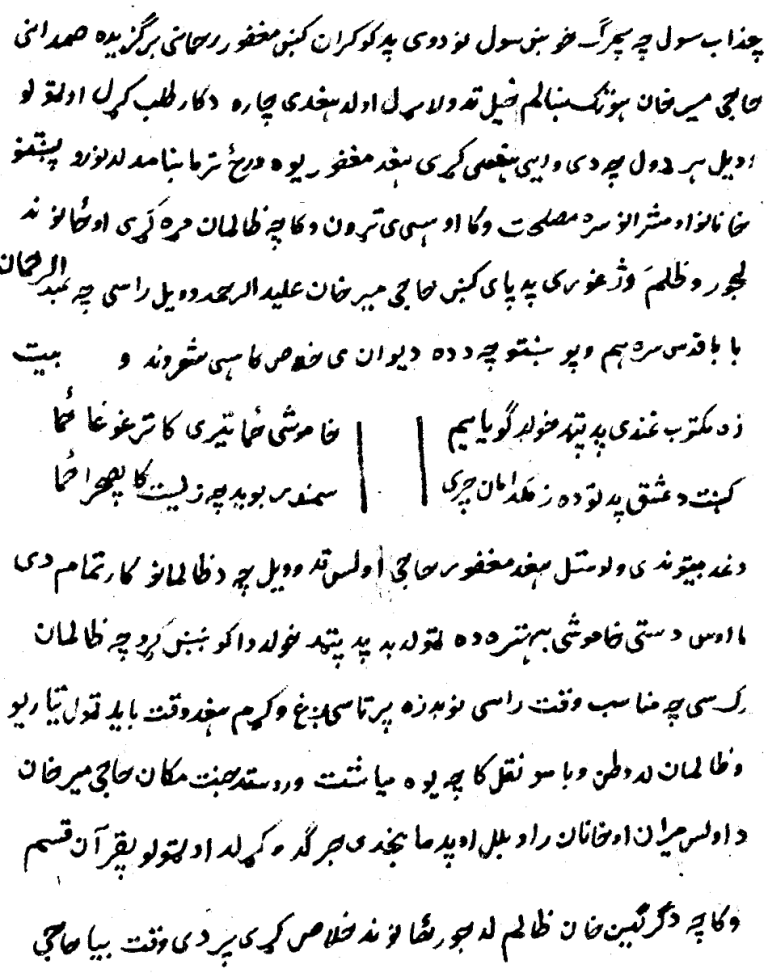 په عذاب سول چه سحرګه خوښ سول نو دوی په کوکران کښی مغفور رحمانی برگزیده صمدانی
حاجی میرخان هوتک ښالم خیل ته ولاړل او له هغه ی چاره د کار طلب کړل او لتو لو
اویل هر ډول چه دی وایی هغسی کړی هغه مغفور یوه ورځ تر ماښامه له نورو پښتنو
خانانو او مشرانو سره مصلحت وکا او سی ی ترون وکا چه ظالمان مړه کړی او ځانونه
له جور و ظلم وژغوری په پای کښی حاجی میرخان علیه الرحمه وویل راسی چه عبدالرحمان
بابا قدس سره هم و پښتو چه د ده دیوان ی خلاص کا سی شعرونه و بیت
زه مکتوب غندی په پټه خوله گویا یم خاموشی ځما تیری کا تر غوغا ځما
کښت د عشق په توده زمکه امان چری سمندر بویه چه زیست کا په صحرا ځما
دغه بیتونه ی ولوستل هغه مغفور حاجی اولس ته وویل چه د ظالمانو کار تمام دی
ما اوس دستی خاموشی بهتره ده ټوله به په پټه خوله دا کوښښ کړو چه ظالمان
رک سی چه مناسب وقت راسی نو به زه پر تاسی ږغ وکړم هغه وقت باید ټول تیار یو
و ظالمان له وطن و باسو نقل کا چه یوه میاشت وروسته جنت مکان حاجی میرخان
د اولس میران او خانان راوبلل او په مانجه ی جرگه وکړله او ټولو په قرآن قسم
وکا چه د گرگین خان ظالم له جوره ځانونه خلاص کړی پر دی وقت بیا حاجی